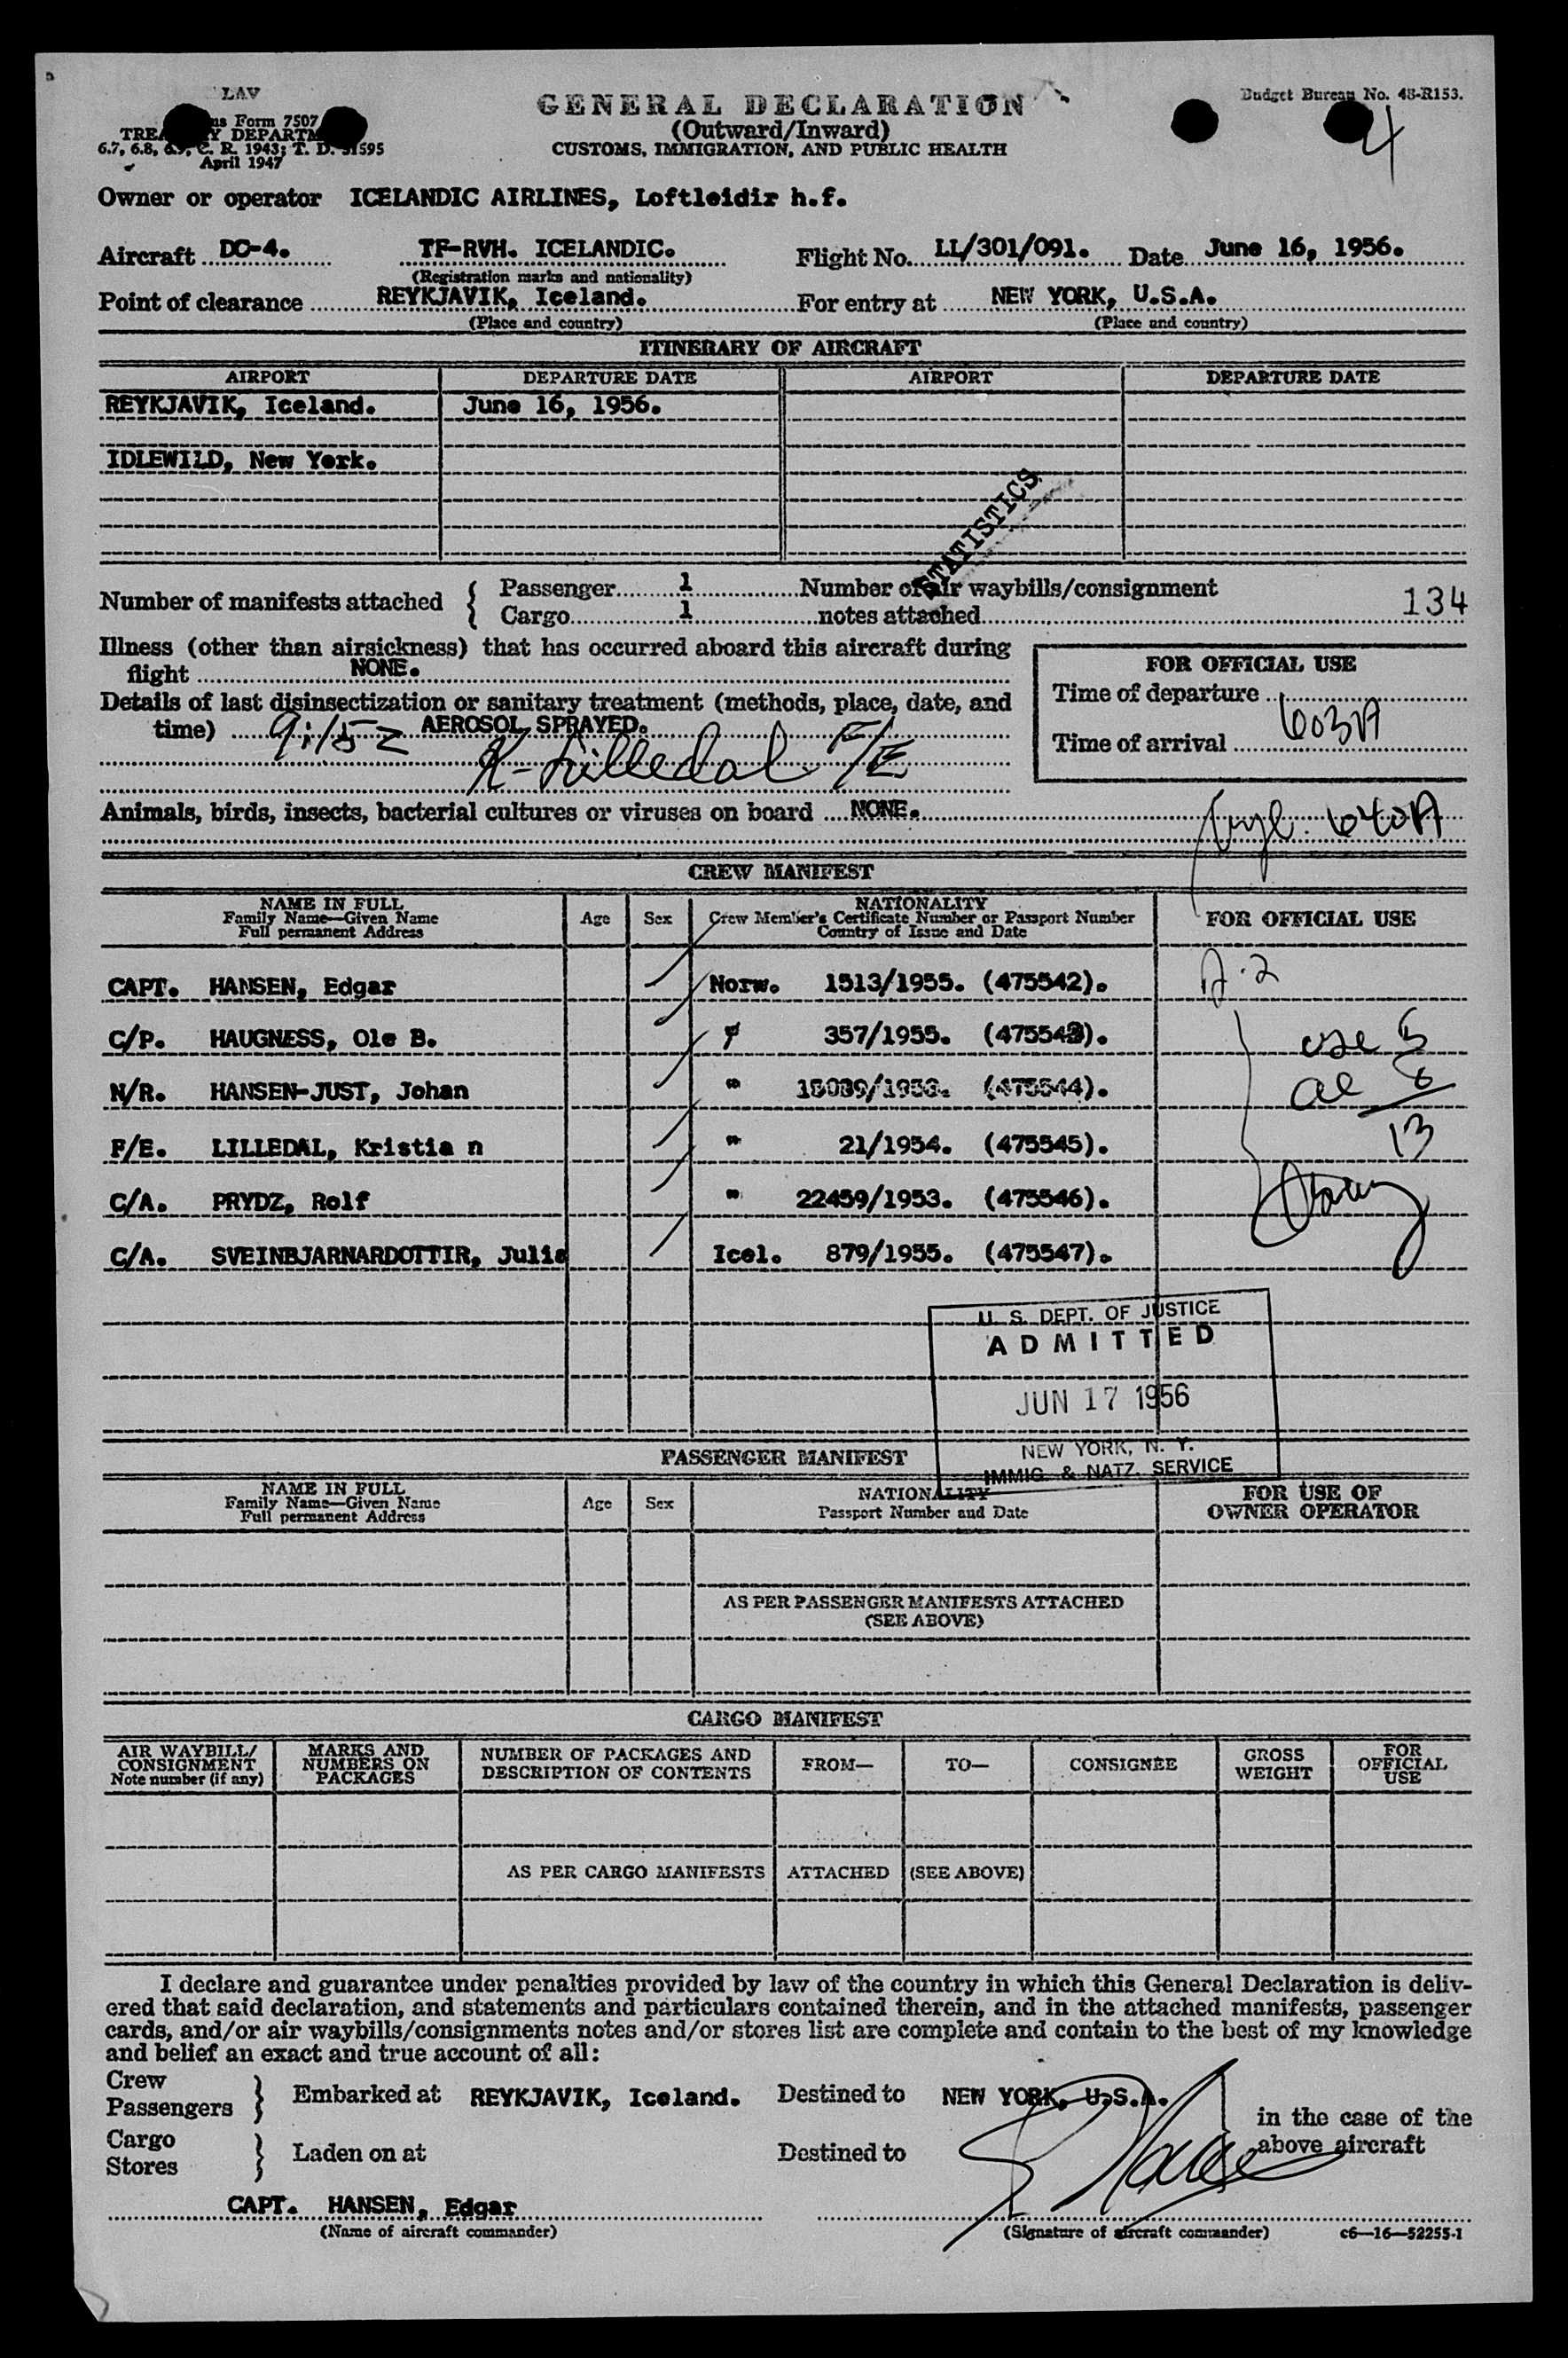 LAV
GENERAL DECLARATION
Budget Bureau No. 48-R153.
Form 7507
(Outward/Inward)
4
CUSTOMS, IMMIGRATION, AND PUBLIC HEALTH
April 1947
Owner or operator ICELANDIC AIRLINES, Loftleidir h.f.
Aircraft DC-4. TF-RVH. ICELANDIC. Flight No. LL/301/091. Date June 16, 1956.
(Registration marks and nationality)
Point of clearance REYKJAVIK, Iceland. For entry at NEW YORK, U.S.A.
(Place and country) (Place and country)
ITINERARY OF AIRCRAFT
AIRPORT DEPARTURE DATE AIRPORT DEPARTURE DATE
REYKJAVIK, Iceland. June 16, 1956.
IDLEWILD, New York.
STATISTICS
Number of manifests attached { Passenger 1 Number of air waybills/consignment
Cargo 1 notes attached 134
Illness (other than airsickness) that has occurred aboard this aircraft during
flight NONE.
FOR OFFICIAL USE
Details of last disinsectization or sanitary treatment (methods, place, date, and
time) 9:15 z AEROSOL SPRAYED.
K-Lilledal F/E
Time of departure
Time of arrival 603A
Animals, birds, insects, bacterial cultures or viruses on board NONE.
640A
CREW MANIFEST
NAME IN FULL
Family Name—Given Name
Full permanent Address
Age Sex
NATIONALITY
Crew Member's Certificate Number or Passport Number
Country of Issue and Date
FOR OFFICIAL USE
CAPT. HANSEN, Edgar Norw. 1513/1955. (475542).
C/P. HAUGNESS, Ole B. " 357/1955. (475543).
N/R. HANSEN-JUST, Johan " (475544).
F/E. LILLEDAL, Kristia n " 21/1954. (475545).
13
C/A. PRYDZ, Rolf " 22459/1953. (475546).
C/A. SVEINBJARNARDOTTIR, Julie Icel. 879/1955. (475547).
U. S. DEPT. OF JUSTICE
ADMITTED
JUN 17 1956
NEW YORK, N. Y.
IMMIG. & NATZ. SERVICE
PASSENGER MANIFEST
NAME IN FULL
Family Name—Given Name
Full permanent Address
Age Sex
NATIONALITY
Passport Number and Date
FOR USE OF
OWNER OPERATOR
AS PER PASSENGER MANIFESTS ATTACHED
(SEE ABOVE)
CARGO MANIFEST
AIR WAYBILL/
CONSIGNMENT
Note number (if any)
MARKS AND
NUMBERS ON
PACKAGES
NUMBER OF PACKAGES AND
DESCRIPTION OF CONTENTS
FROM— TO— CONSIGNEE
GROSS
WEIGHT
FOR
OFFICIAL
USE
AS PER CARGO MANIFESTS ATTACHED (SEE ABOVE)
I declare and guarantee under penalties provided by law of the country in which this General Declaration is deliv-
ered that said declaration, and statements and particulars contained therein, and in the attached manifests, passenger
cards, and/or air waybills/consignments notes and/or stores list are complete and contain to the best of my knowledge
and belief an exact and true account of all:
Crew
Passengers } Embarked at REYKJAVIK, Iceland. Destined to NEW YORK, U.S.A.
in the case of the
above aircraft
Cargo
Stores } Laden on at Destined to
CAPT. HANSEN, Edgar
(Name of aircraft commander) (Signature of aircraft commander) c6—16—52255-1